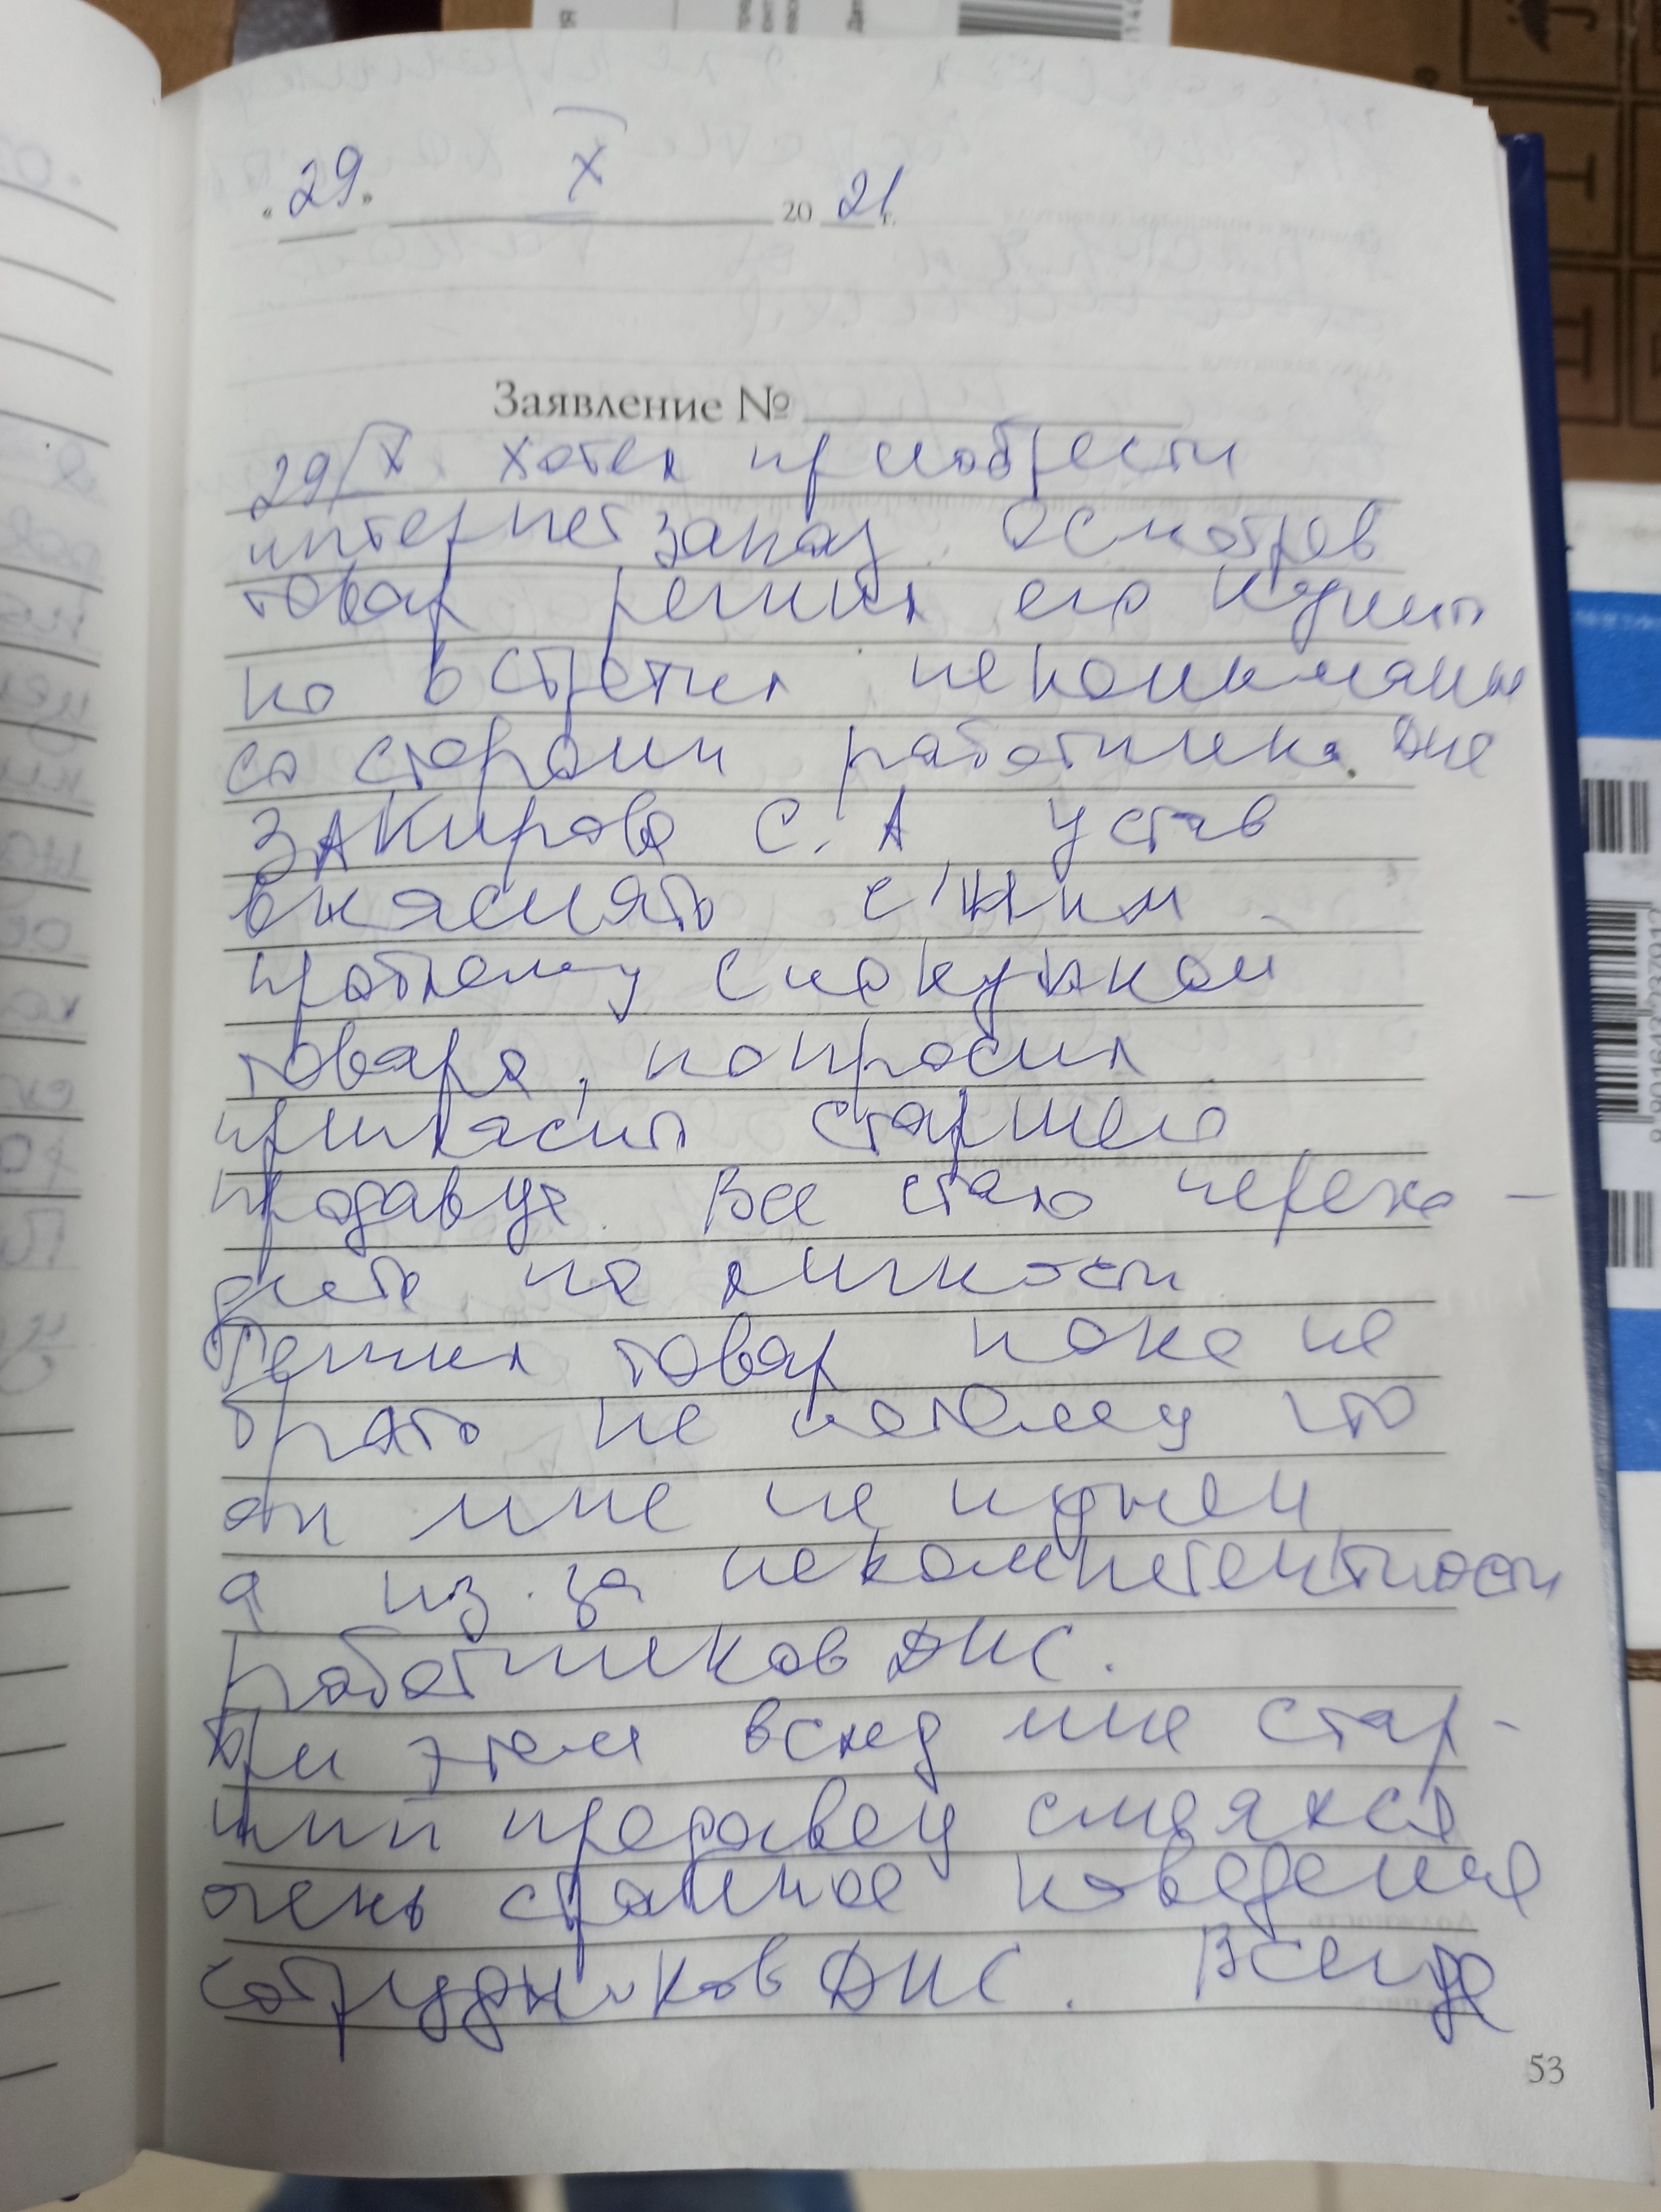 « 29 » X 20 21 г.
Заявление №
29/X хотел приобрести
интернет заказ. Осмотрев
товар решил его купить
но встретил непонимание
со стороны работника ДНС
Закирова С. А устав
выяснять с ним
проблему с покупкой
товара, попросил
пригласить старшего
продавца. Все стало перехо-
дить на личности
Решил товар пока не
брать не потому что
он мне не нужен
а из-за некомпетентности
работников ДНС.
При этом вслед мне стар-
ший продавец смеялся
очень странное поведение
сотрудников ДНС. Всегда
53